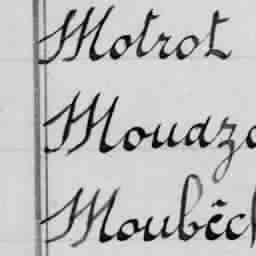 Motrot
Moudza
Moubêch